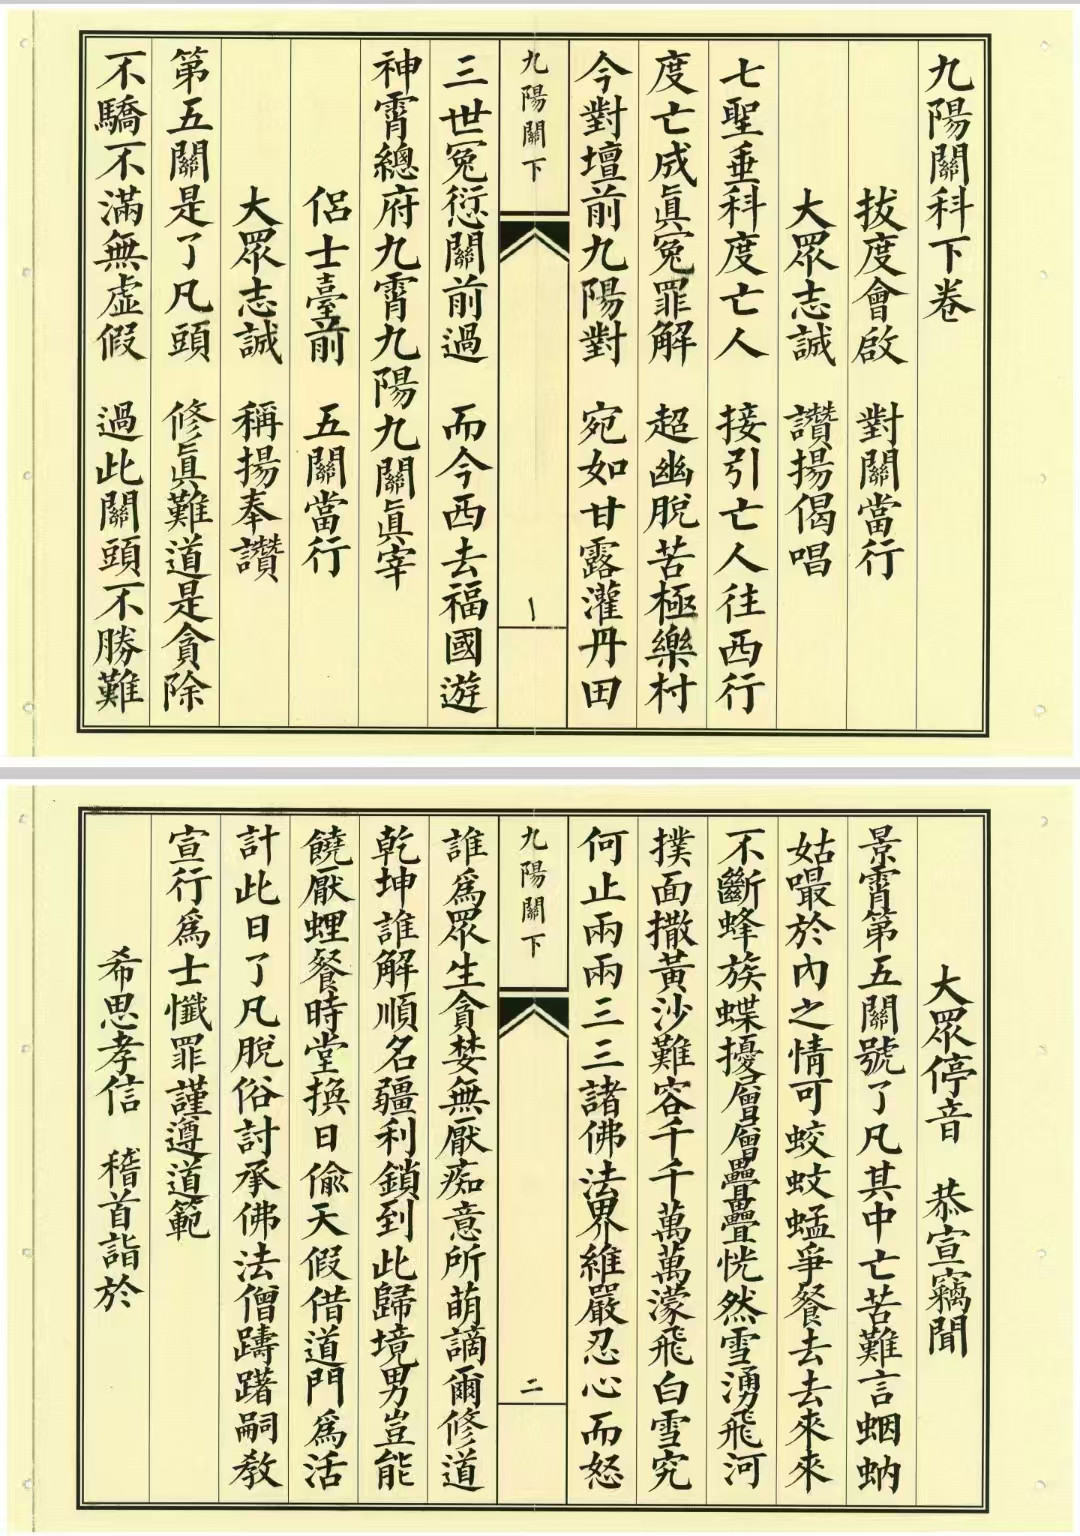 九陽關科下卷
拔度會啟　對關當行
大眾志誠　讚揚偈唱
七聖垂科度亡人　接引亡人往西行
度亡成眞冤罪解　超幽脫苦極樂村
今對壇前九陽對　宛如甘露灌丹田
九陽關下
一
三世冤愆關前過　而今西去福國遊
神霄總府九霄九陽九關眞宰
侶士臺前　五關當行
大眾志誠　稱揚奉讚
第五關是了凡頭　修眞難道是貪除
不驕不滿無虛假　過此關頭不勝難
大眾停音　恭宣竊聞
景霄第五關號了凡其中亡苦難言蜠蚋
姑嘬於內之情可蛟蚊蜢爭餐去去來來
不斷蜂族蝶擾層層疊疊恍然雪湧飛河
撲面撒黃沙難容千千萬萬濛飛白雪究
何止兩兩三三諸佛法界維嚴忍心而怒
九陽關下
二
誰爲眾生貪婪無厭痴意所萌謫爾修道
乾坤誰解順名疆利鎖到此歸境男豈能
饒厭蜱餐時堂換日偸天假借道門爲活
計此日了凡脫俗討承佛法僧躊躇嗣教
宣行爲士懺罪謹遵道範
希思孝信　稽首詣於